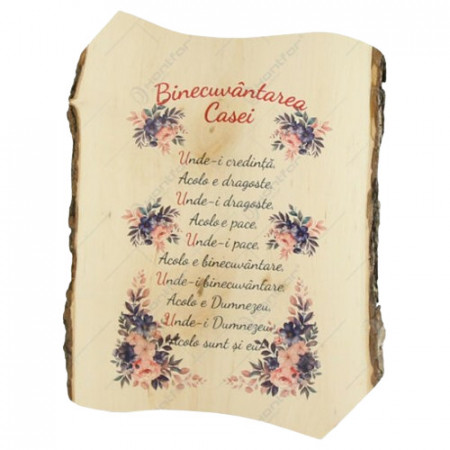 Binecuvântarea
Casei
Unde-i credință,
Acolo e dragoste,
Unde-i dragoste,
Acolo e pace,
Unde-i pace,
Acolo e binecuvântare,
Unde-i binecuvântare,
Acolo e Dumnezeu,
Unde-i Dumnezeu,
Acolo sunt și eu.